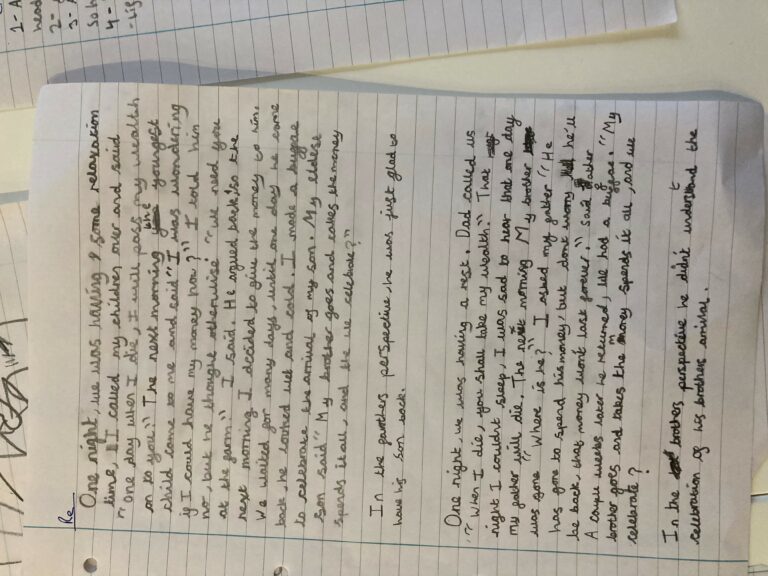 Re
One night, we was having some relaxation
time, I called my children over and said
"one day when I die, I will pass my wealth
on to you." The next morning the youngest
child came to me and said "I was wondering
if I could have my money now?" I told him
no, but he thought otherwise "we need you
at the farm" I said. He agued back, so the
next morning I decided to give the money to him.
We waited for many days, until one day he came
back he looked wet and cold. I made a
to celebrate the arrival of my son. My eldest
son said "My brother goes and takes the money
spends it all, and the we celebrate?"
In the farthers perspective, he was just glad to
have his son back.
One night, we was having a rest. Dad called us
"When I die, you shall take my wealth" That
night I couldn't sleep, I was sad to hear that one day
my father will die. The next morning My brother
was gone "Where is he?" I asked my father "He
has gone to spend his money, but dont worry he'll
be back, that money won't last forever." Said father
A couple weeks later he returned, we had a "My
brother goes and takes the money spends it all, and we
celebrate?
In the brothers perspective he didn't understand the
celebration of his brothers arrival.
1 - A
head
2 -
3 - A
So h
4 -